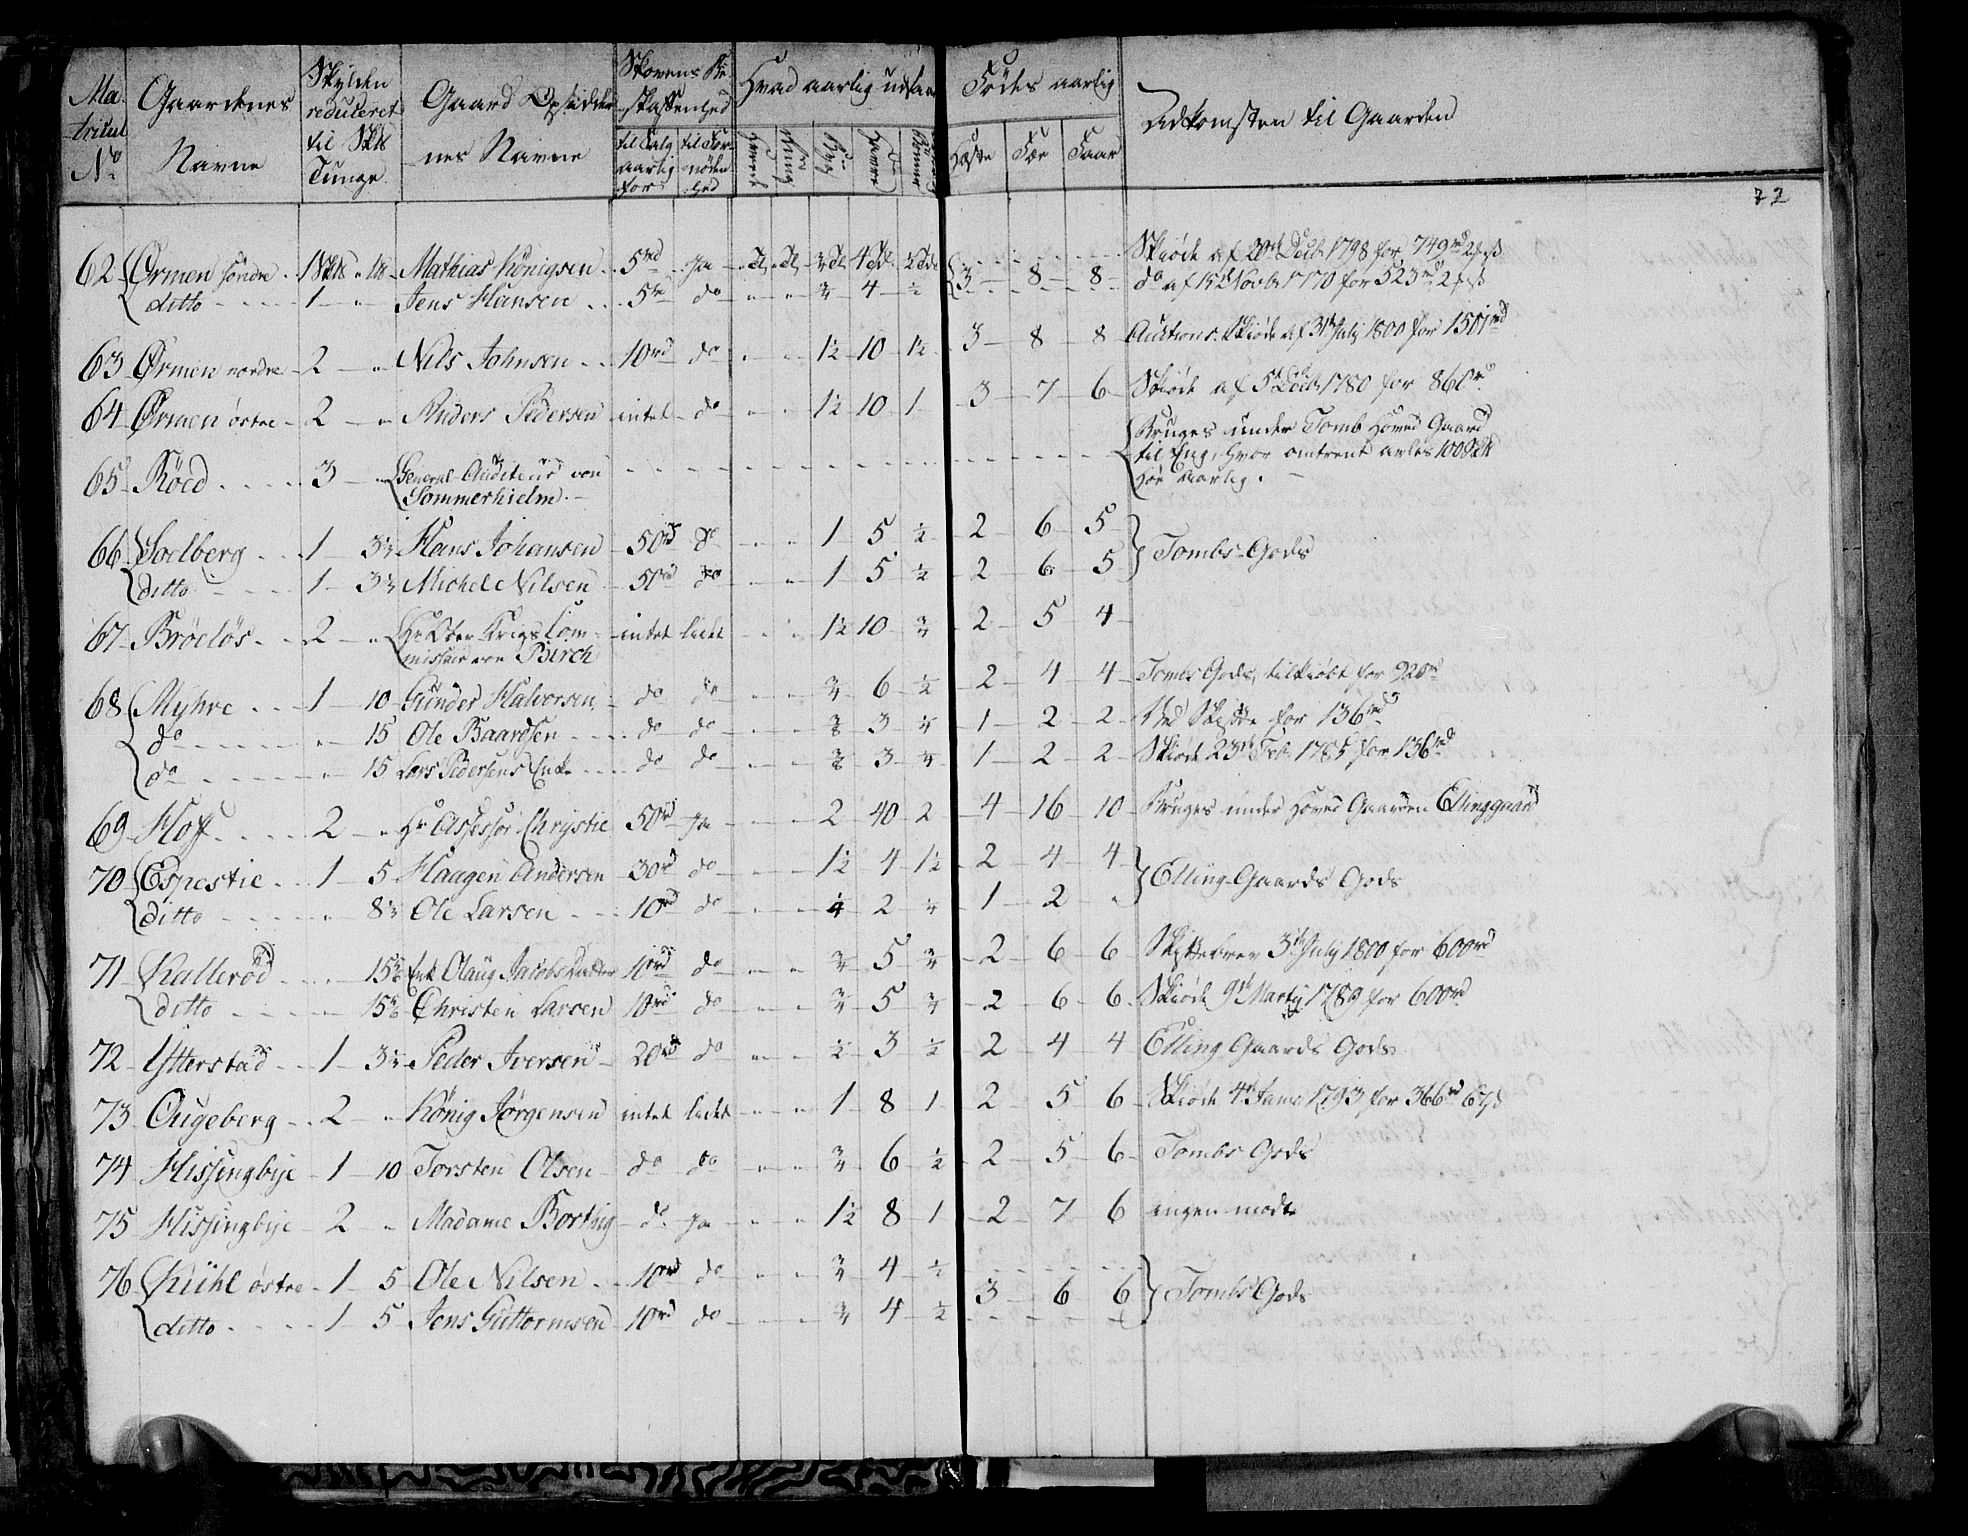 Ma-
tricul
No
Gaardenes
Navne
Skylden
reduceret
til Skls
Tunge
Gaard Opsidder
nes Navne
Skovens Be-
skaffenhed
til Salg
aarlig
for
til For-
nøden
hed
Hvad aarlig udsaaes
Hvede
Rug
Byg
Havre
Fødes aarlig
Heste
Fæe
Faar
Adkomsten til Gaarden
22
62 Ørmen søndre 1 Skls " Mathias Königsen 5rd Ja 4 Td. Skiøde af 20de Decb. 1798 for 749rd
ditto 1 " Jens Hansen 5rd do " " 3/4 4 1/2 3 8 8 do af 15d Novbr 1770 for 523rd
63 Ørmen nordre 2 " Nils Johnsen 10rd do " " 1 1/2 10 1 1/2 3 8 8 Auctions Skiøde af 31te July 1800 for 1501rd
64 Ørmen østre 2 " Anders Pedersen intet do " " 1 1/2 10 1 3 7 6 Skiøde af 5te Decb 1780 for 860rd
65 Röed 3 " General-Auditeur von
Sommerhielm
Bruges under Tomb Hoved Gaard
til Eng, hvor omtrent avles 100
Høe Aarlig.
66 Soelberg 1 3 1/3 Hans Johansen 50rd do " " 1 5 1/2 2 6 5 Tombs-Gods
ditto 1 3 1/3 Michel Nilsen 50rd do " " 1 5 1/2 2 6 5
67 Bröelös 2 " Hr Ober Krigs Com-
missair von Birch intet lidet " " 1 1/2 10 3/4 2 5 4
68 Myhre 1 10 Gunder Halvorsen do do " " 3/4 6 1/2 2 4 4 Tombs Gods, tilkiøbt for 920rd
do " 15 Ole Baardsen do do 3/8 3 1/4 1 2 2 Ved Skifte for 136rd
do " 15 Lars Pedersens Enke do do 3/8 3 1/4 1 2 2 Skiøde 23de Feb. 1785 for 136rd
69 Hoff 2 " Hr Assessor Chrystie 50rd Ja 2 40 2 4 16 10 Bruges under Hoved Gaarden Ellinggaard
70 Espestie 1 5 Haagen Andersen 30rd do 1 1/2 4 1 1/2 2 4 4 Elling-Gaards Gods
ditto " 8 1/3 Ole Larsen 10rd do 1/4 2 1/4 1 2 "
71 Kallerød " 15 Enke Olaug Jacobsdatter 10rd do " " 3/4 5 3/4 2 6 6 Skiftebrev 3de July 1800 for 600rd
ditto " 15 Christen Larsen 10rd do " " 3/4 5 3/4 2 6 6 Skiøde 9de Martij 1789 for 600rd
72 Ytterstad 1 3 1/3 Peder Iversen 20rd do " " 1/2 3 1/2 2 4 4 Elling Gaards Gods
73 Ougeberg 2 " König Jørgensen intet lidet " " 1 8 1 2 5 6 Skiøde 4de 1793 for 366rd
74 Hissingbye 1 10 Torsten Olsen do do " " 3/4 6 1/2 2 5 6 Tombs Gods
75 Hissingbye 2 " Madame Borthig do Ja " " 1 1/2 8 1 2 7 6 ingen mødt
76 Kiihl østre 1 5 Ole Nilsen 10rd do " " 3/4 4 1/2 3 6 6 Tombs Gods
ditto 1 5 Jens Guttormsen 10rd do " " 3/4 4 1/2